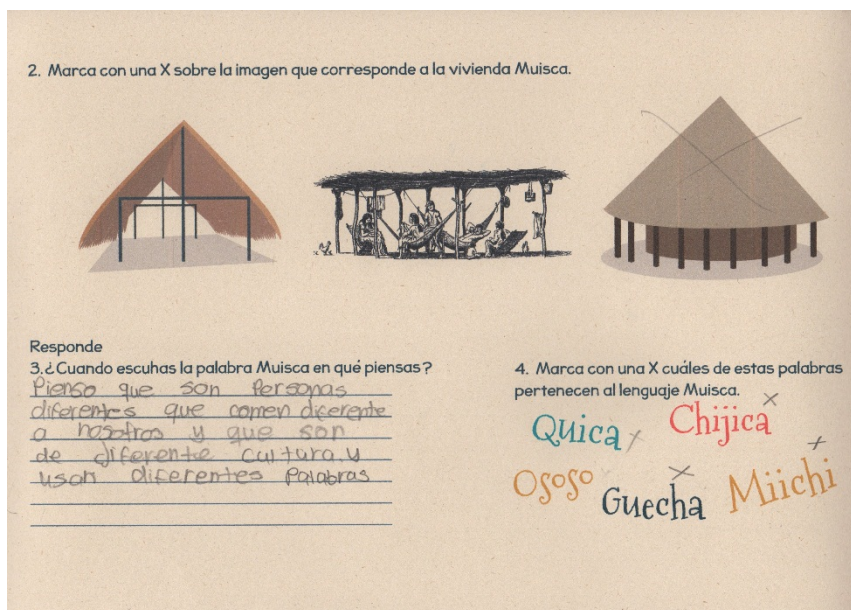 2. Marca con una X sobre la imagen que corresponde a la vivienda Muisca.
Responde
3.¿Cuando escuhas la palabra Muisca en qué piensas?
Pienso que son Personas
diferentes que comen diferente
a nosotros y que son
de diferente cultura y
usan diferentes Palabras
4. Marca con una X cuáles de estas palabras
pertenecen al lenguaje Muisca.
Quica x Chijica x
Ososo Guecha x Miichi x